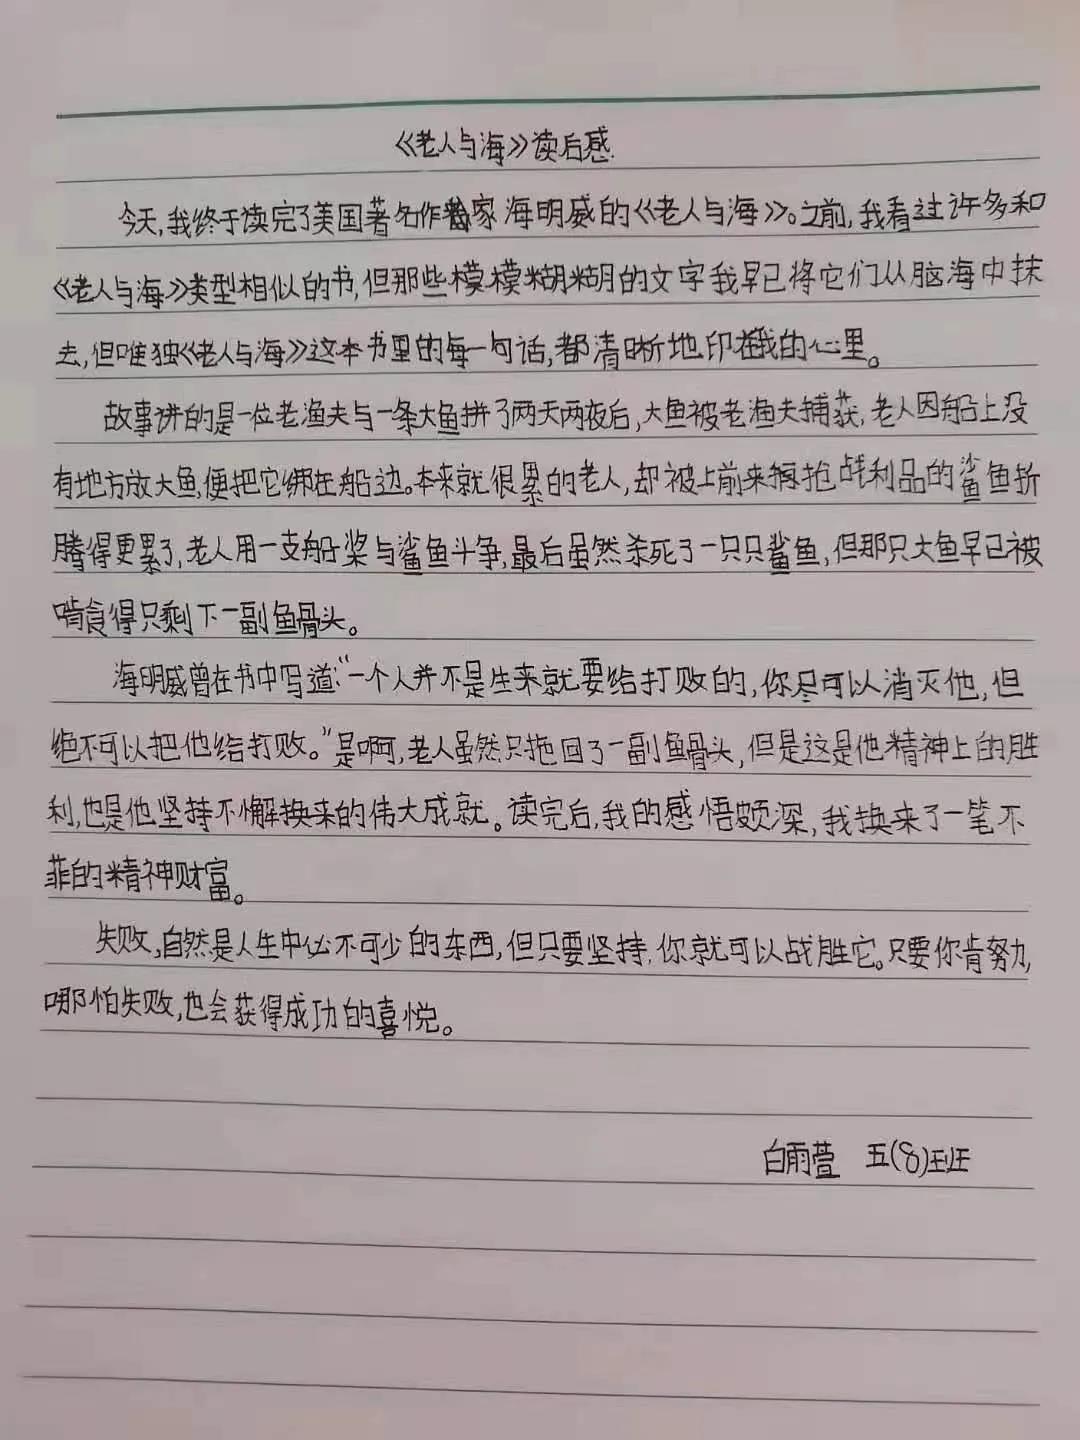 《老人与海》读后感
今天,我终于读完了美国著名作家海明威的《老人与海》。之前,我看过许多和
《老人与海》类型相似的书,但那些模模糊糊的文字我早已将它们从脑海中抹
去,但唯独《老人与海》这本书里的每一句话,都清晰地印在我的心里。
故事讲的是一位老渔夫与一条大鱼拼了两天两夜后,大鱼被老渔夫捕获,老人因船上没
有地方放大鱼,便把它绑在船边。本来就很累的老人,却被上前来掠抢战利品的鲨鱼折
腾得更累了,老人用一支船桨与鲨鱼斗争,最后虽然杀死了一只只鲨鱼,但那只大鱼早已被
啃食得只剩下一副鱼骨头。
海明威曾在书中写道:“一个人并不是生来就要给打败的,你尽可以消灭他,但
绝不可以把他给打败。”是啊,老人虽然只拖回了一副鱼骨头,但是这是他精神上的胜
利,也是他坚持不懈换来的伟大成就。读完后,我的感悟颇深,我换来了一笔不
菲的精神财富。
失败,自然是人生中必不可少的东西,但只要坚持,你就可以战胜它。只要你肯努力,
哪怕失败,也会获得成功的喜悦。
白雨萱 五(8)班